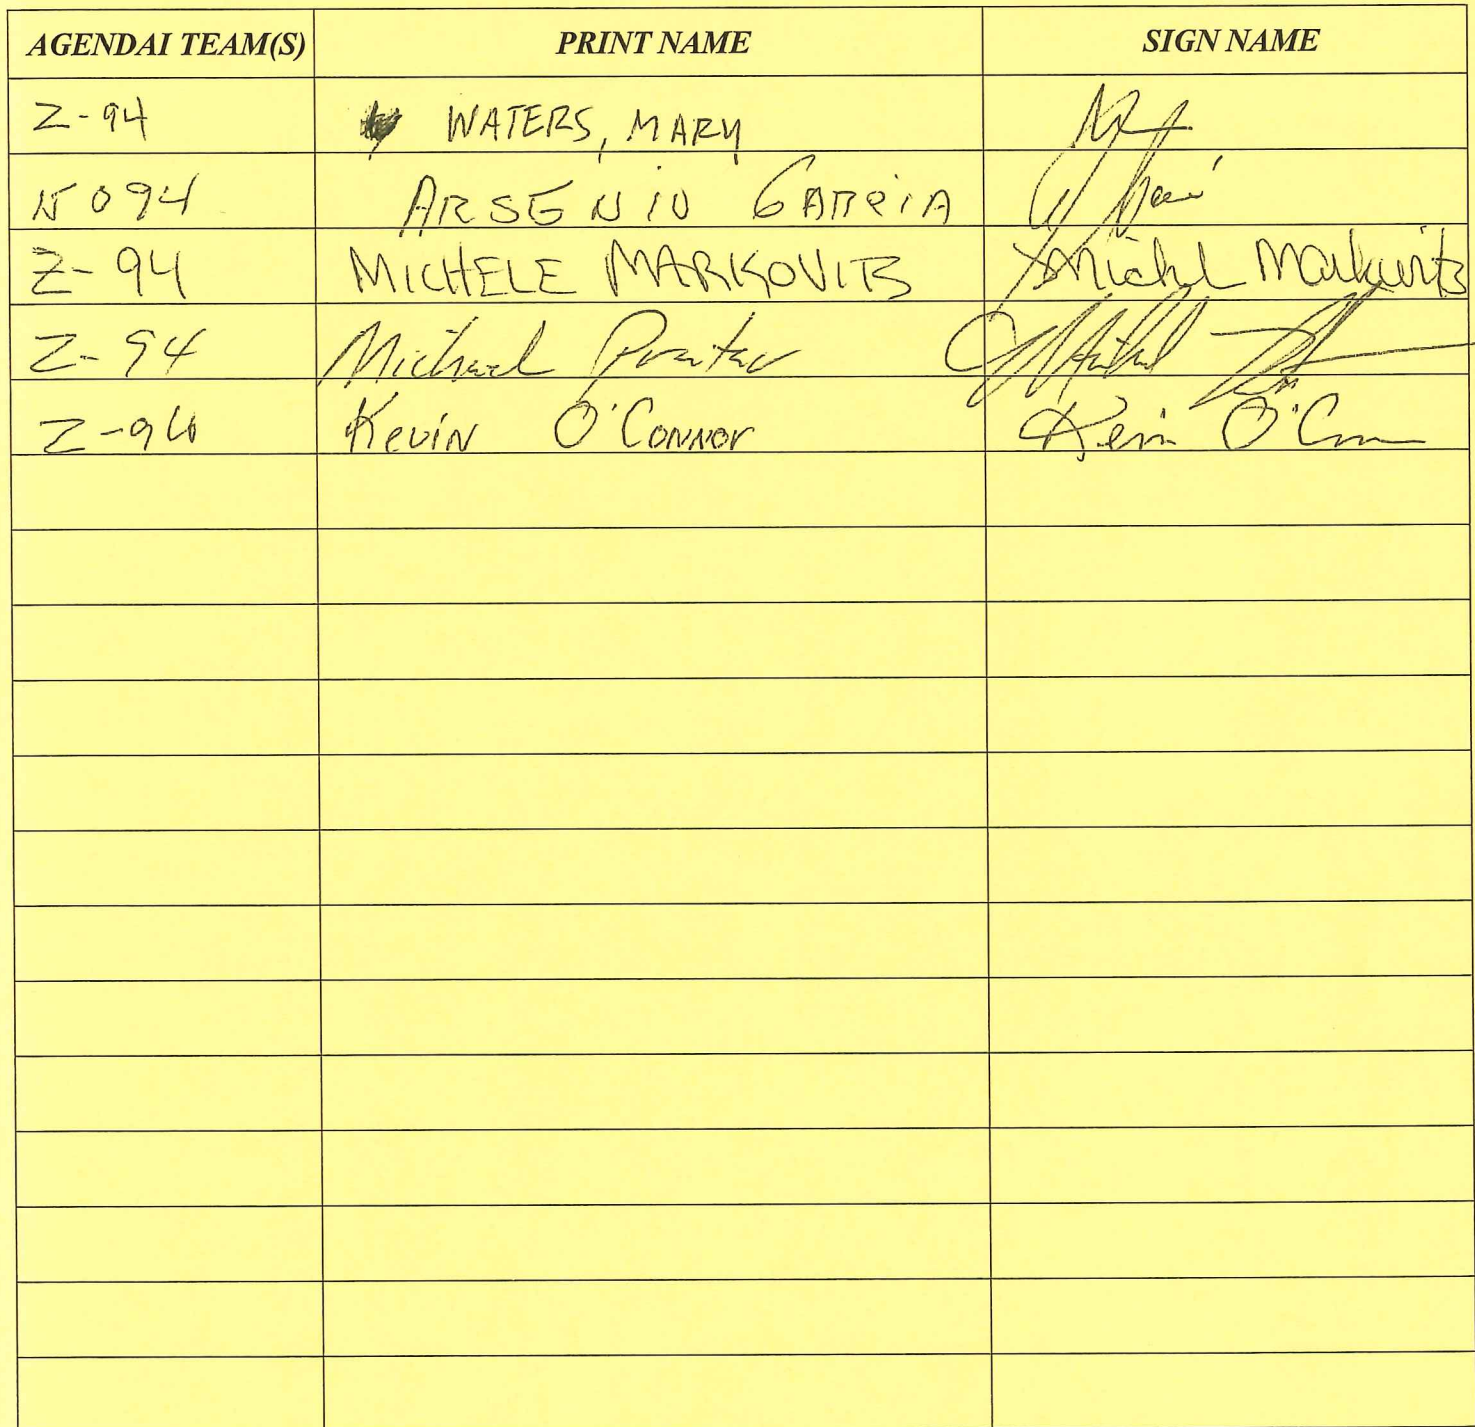 AGENDAI TEAM(S) PRINT NAME SIGN NAME
Z-94 WATERS, MARY
ARSENIO GARCIA
Z-94 MICHELE MARKOVITS Michele Markovits
Z-94 Michael
Z-94 Kevin O'Connor Kevin O'Connor